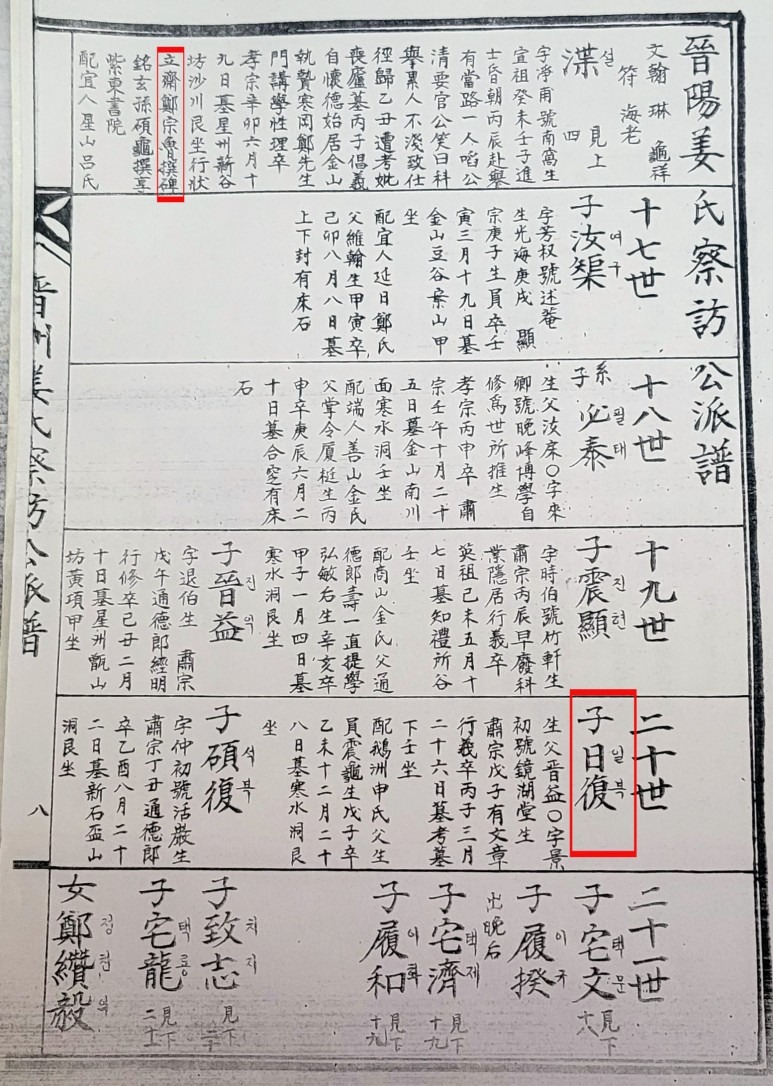 晉陽姜氏察訪公派譜
文翰 琳 龜祥
符 海老
渫 見上
설 四
字淨甫號南窩生
宣祖癸未壬子進
士昏朝丙辰赴擧
有當路一人啗公
淸要官公笑曰科
擧累人不淡致仕
徑歸乙丑遭考妣
喪廬墓丙子倡義
自懷德始居金山
執贄寒岡鄭先生
門講學性理卒
孝宗辛卯六月十
九日墓星州薪谷
坊沙川艮坐行狀
立齋鄭宗魯撰碑
銘玄孫碩龜撰享
紫東書院
配宜人星山呂氏
十七世
子汝榘
여구
字芳叔號述菴
生光海庚戌 顯
宗庚子生員卒壬
寅三月十九日墓
金山豆谷案山甲
坐
配宜人延日鄭氏
父維翰生甲寅卒
己卯八月八日墓
上下封有床石
十八世
系子 必泰
필태
生父汝㡳○字來
卿號晩峰博學自
修爲世所推生
孝宗丙申卒 肅
宗壬午十月二十
五日墓金山南川
面寒水洞壬坐
配端人善山金氏
父掌令厦梃生丙
申卒庚辰六月二
十日墓合窆有床
石
十九世
子震顯
진현
字時伯號竹軒生
肅宗丙辰早廢科
業隱居行義卒
英祖己未五月十
七日墓知禮所谷
壬坐
配商山金氏父通
德郎壽一直提學
弘敏后生辛亥卒
甲子一月四日墓
寒水洞艮坐
子晉益
진익
字退伯生 肅宗
戊午通德郎經明
行修卒己丑二月
十日墓星州甑山
坊黃項甲坐
二十世
子日復
일복
生父晉益○字景
初號鏡湖堂生
肅宗戊子有文章
行義卒丙子三月
二十六日墓考墓
下壬坐
配鵝洲申氏父生
員震龜生戊子卒
乙未十二月二十
八日墓寒水洞艮
坐
子碩復
석복
字仲初號活巖生
肅宗丁丑通德郎
卒乙酉八月二十
二日墓新石盃山
洞艮坐
二十一世
子宅文
택문
見下
十八
子履揆
이규
出晩后
子宅濟
택제
見下
十九
子履和
이화
見下
十九
子致志
치지
見下
二十
子宅龍
택룡
見下
二十
女鄭纘毅
晋州姜氏察訪公派譜
八